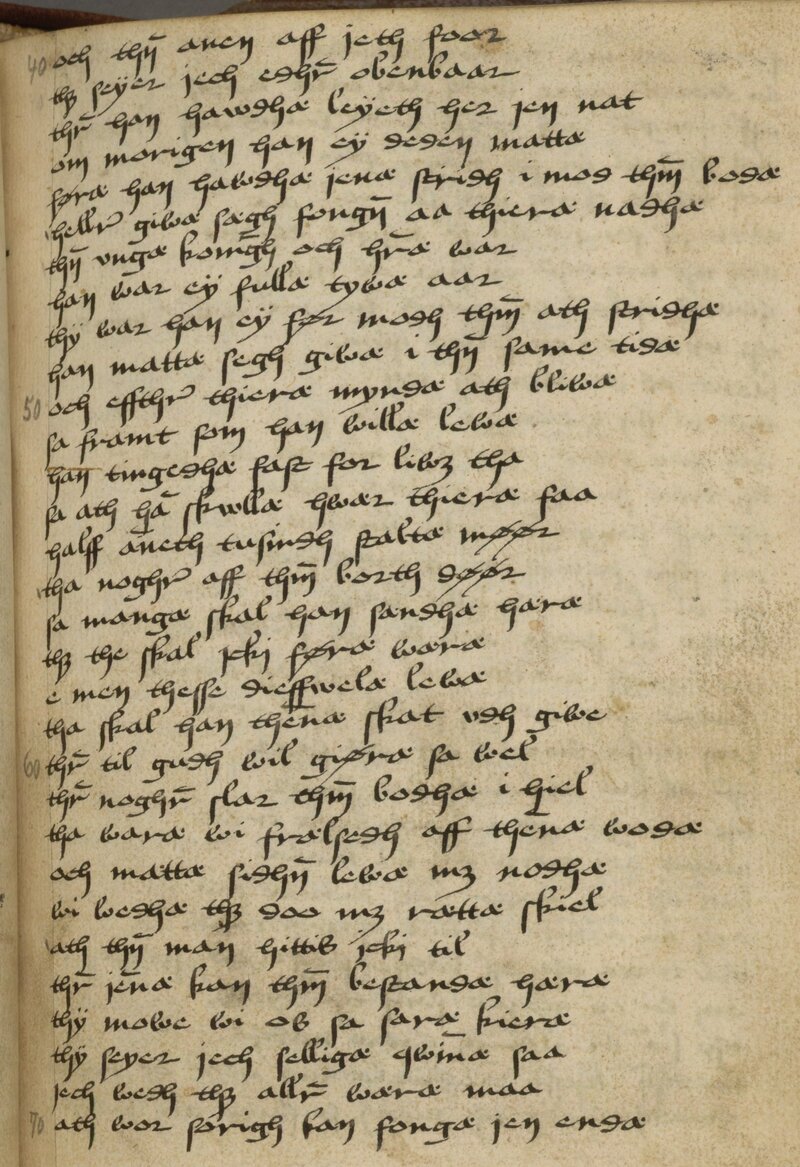 40 och thn̄ anen aff jeth foar
thꝫ seyer jech edhr̄ obenbaar
thr̄ han hawdhæ leyeth her jen nat
om morigen han ey deden mattæ
føræ han hawdhæ jenæ stridh i mod thm̄ bodæ
hellr̄ giwæ sægh fongn̄ aa thieræ nadhæ
thn̄ vngæ koni̅gh och hr̄æ war
han war ey fullæ tywæ aar
thy war han ey før modh thm̄ ath stridhæ
han mattæ segh giwæ i thn̄ same tidæ
50 och effthr̄ thieræ myndæ ath bliwæ
sa framt som han willæ lewæ
han tingedhæ fast for liwꝫ tha
sa ath ha̅ skwllæ hwær thieræ faa
halff an̄eth tusindh stalta møør
tha noghr̄ aff thm̄ borth døør
sa mangæ skal han sændhæ hæræ
thꝫ the skal jcki føræ wæræ
e men thesse dieffwelæ lewæ
tha skal han then̄æ skat vdh giwe
60 thr̄ til gudh wil giøræ sa wel
thr̄ noghr̄ slar thm̄ bodhæ i hiel
tha waræ wi frælsedh aff then̄æ wodæ
och mattæ sidhn̄ lewæ mꝫ nodhæ
wi wedhæ thꝫ doo mꝫ rættæ skiel
ath thn̄ man hittis jcki til
thr̄ jen̄æ kan thm̄ bestandæ hæræ
thy mowe wi os sa saræ kieræ
thy seyer jech selligæ qwin̄æ saa
jech wedh thꝫ allr̄ wæræ maa
70 ath wor sorigh kan fongæ jen endæ